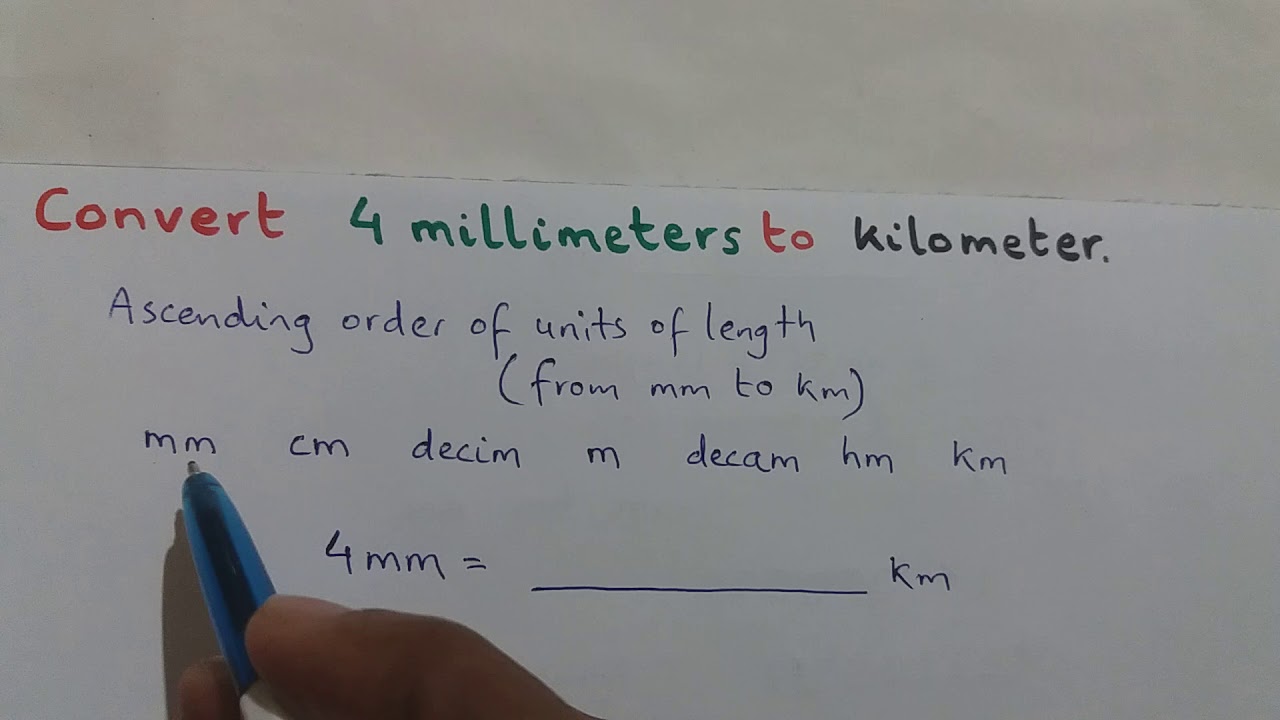 Convert 4 millimeters to kilometer.
Ascending order of units of length
(from mm to km)
mm cm decim m decam hm km
4mm = __________ km